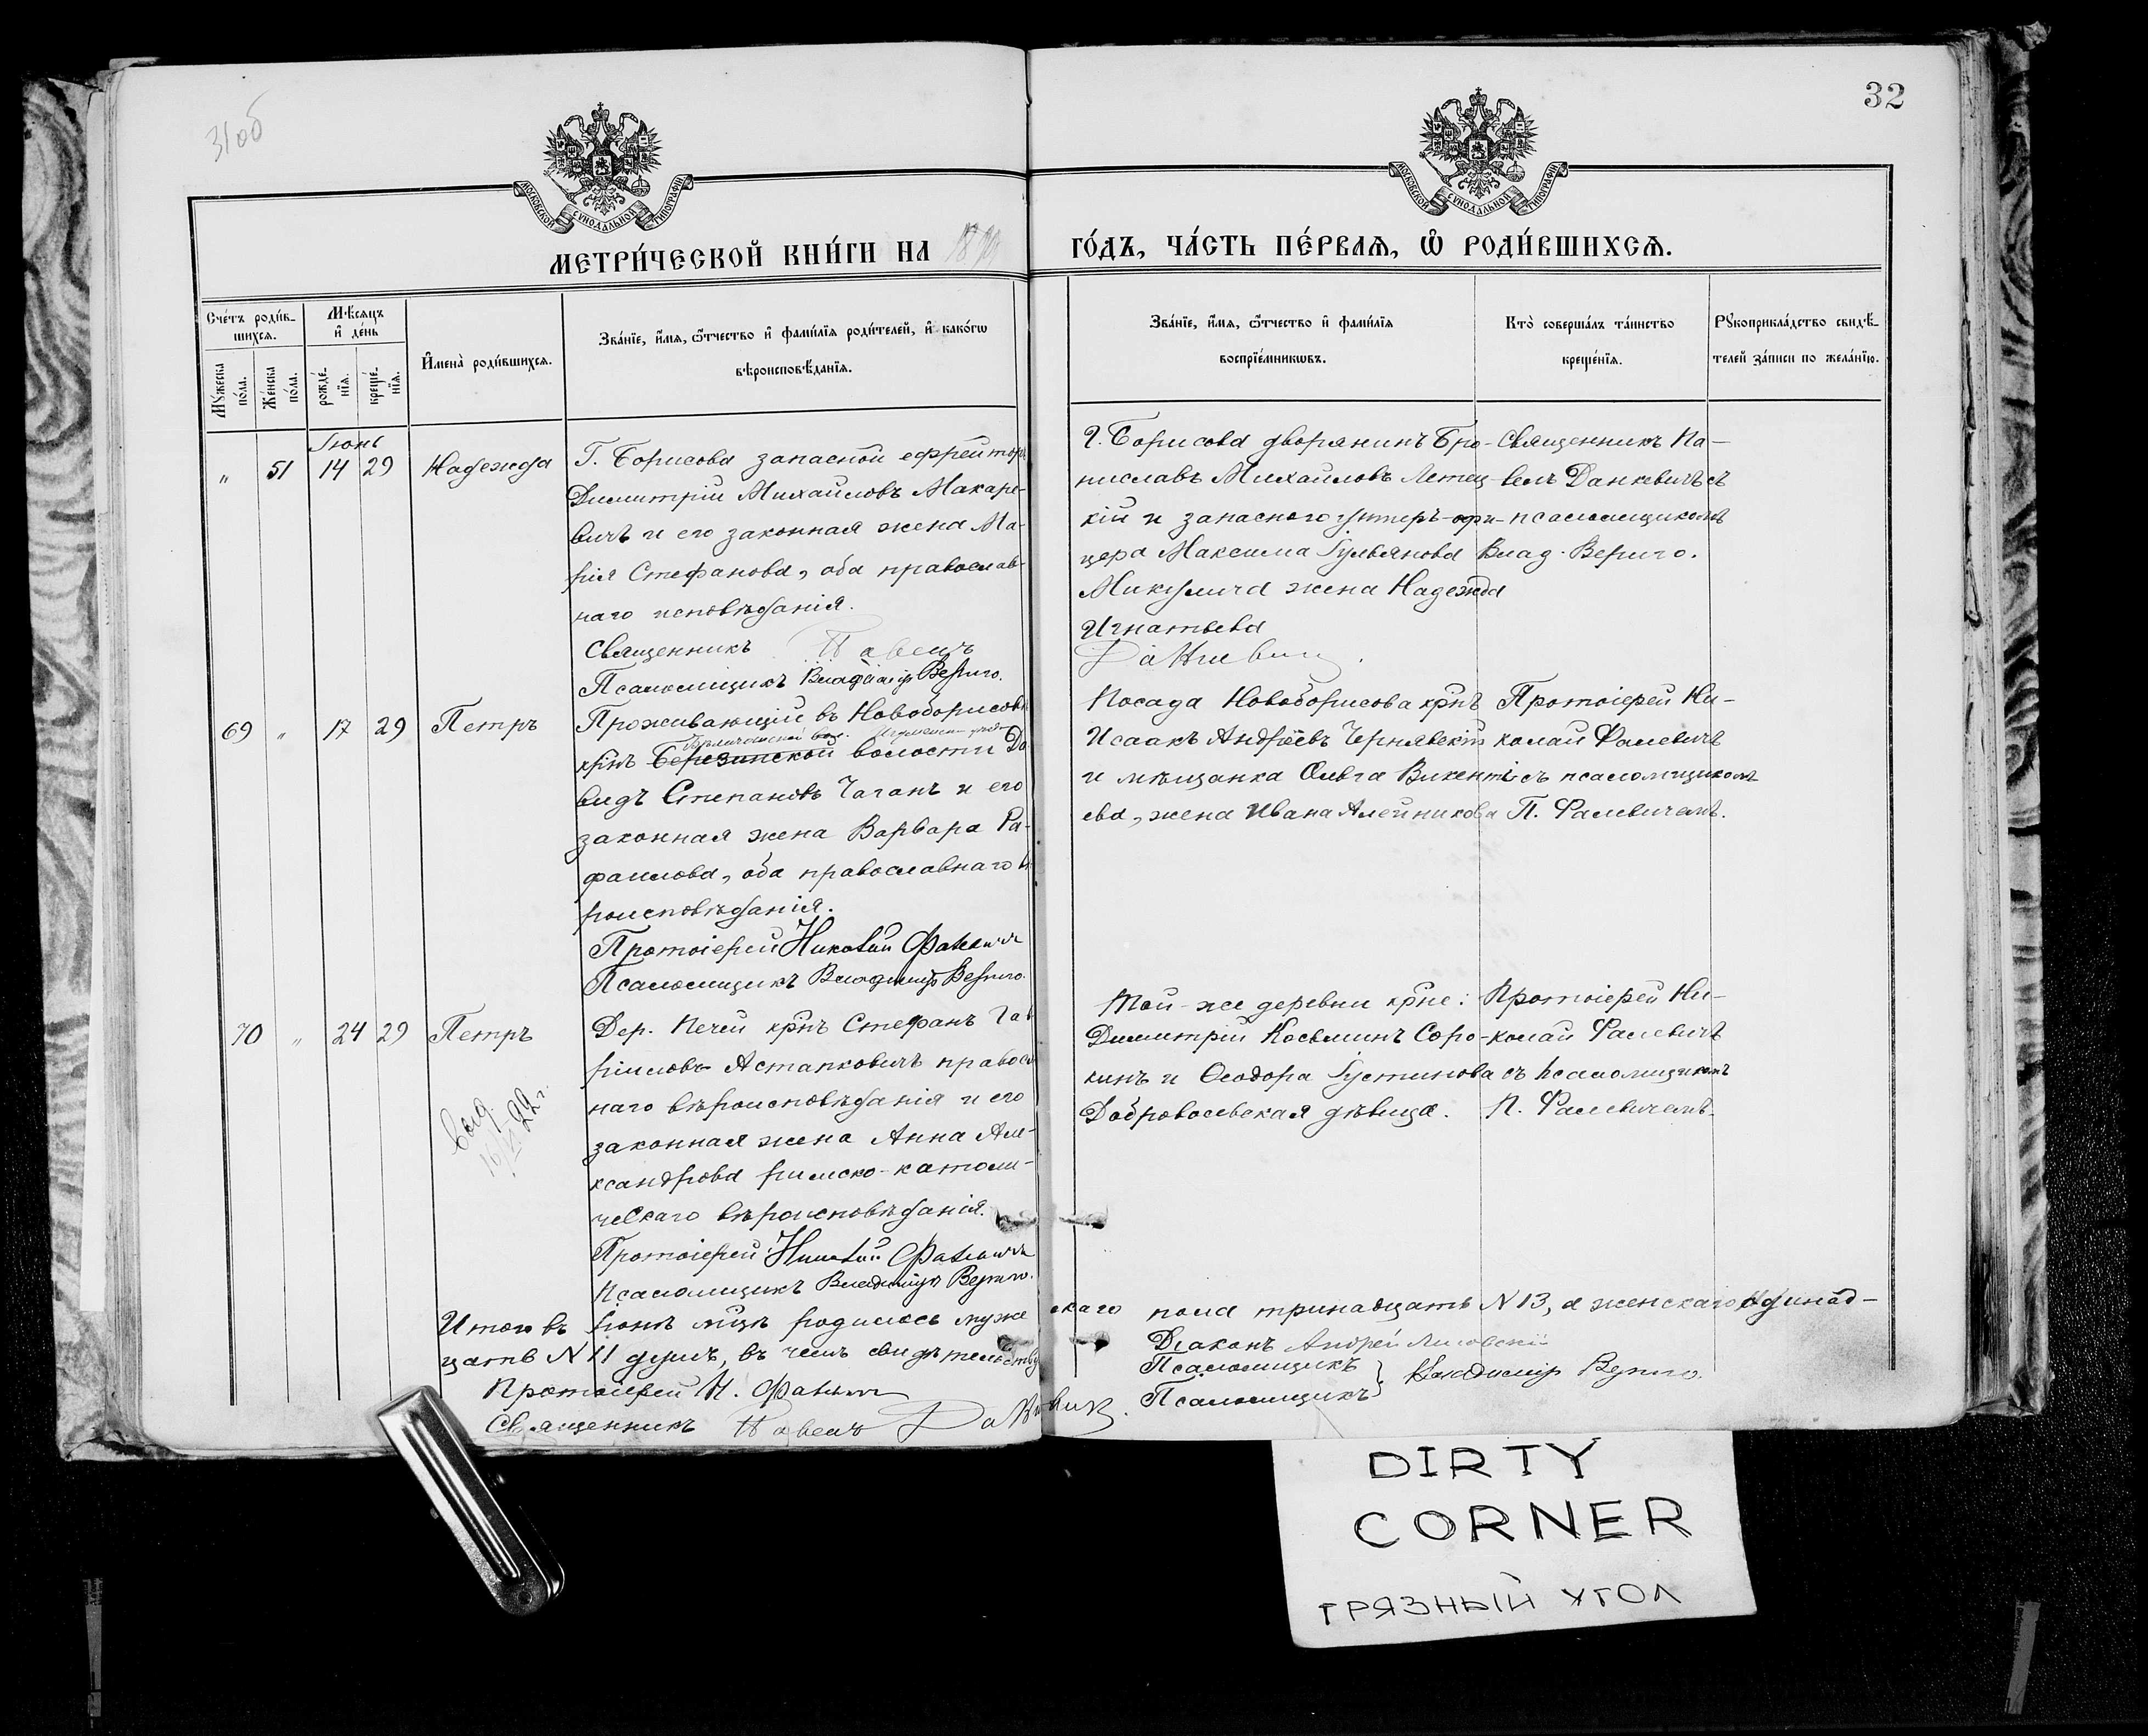 31об
32
МОСКОВСКОЙ СѴНОДАЛЬНОЙ ТИПОГРАФІИ
МОСКОВСКОЙ СѴНОДАЛЬНОЙ ТИПОГРАФІИ
МЕТРИ́ЧЕСКОЙ КНИ́ГИ НА
ГО́ДЪ, ЧА́СТЬ ПЕ́РВАЯ, Ѽ РОДИ́ВШИХСЯ.
Сче́тъ роди́в-
шихся.
Мꙋжеска по́ла.
Же́нска по́ла.
Мѣ́сяцъ
и҆ де́нь
рожде́-
нїя.
креще́-
нїя.
И҆мена̀ роди́вшихся.
Зва́нїе, и҆́мя, ѻ҆́тчество и҆ фами́лїя роди́телей, и҆ како́гѡ
вѣроисповѣ́данїя.
Зва́нїе, и҆́мя, ѻ҆́тчество и҆ фами́лїя
воспрїе́мникѡвъ.
Кто̀ соверша́лъ та́инство
креще́нїя.
Рꙋкоприкла́дство свидѣ́-
телей за́писи по жела́нїю.
Іюнь
" 51 14 29 Надежда
Г. Борисова запасной ефрейторъ
Димитрій Михаиловъ Макаре-
вичъ и его законная жена Ма-
рія Стефанова, оба православ-
наго исповѣданія.
Священникъ Павелъ
Псаломщикъ Владиміръ Вериго.
Г. Борисова дворянинъ Бро-
ниславъ Михаиловъ Летец-
кій и запасного унтеръ-офи-
цера Максима Іульянова
Микулича жена Надежда
Игнатьева
Данкевичъ.
Священникъ Па-
велъ Данкевичъ съ
псаломщикомъ
Влад. Вериго.
69 " 17 29 Петръ
Проживающій въ Новоборисовѣ
вол. Игуменск. уѣз.
крнъ Березинской волости Да
видъ Степановъ Чаганъ и его
законная жена Варвара Ра-
фаилова, оба православнаго вѣ
роисповѣданія.
Протоіерей Николай Фалевичъ
Псаломщикъ Владиміръ Вериго.
Посада Новоборисова крнъ
Исаакъ Андреевъ Чернявскій
и мѣщанка Ольга Викенті-
ева, жена Ивана Алейникова
Протоіерей Ни-
колай Фалевичъ
съ псаломщикомъ
П. Фалевичемъ.
70 " 24 29 Петръ
выд.
22 г.
Дер. Печей крнъ Стефанъ Гав
ріиловъ Астапковичъ правосл
наго вѣроисповѣданія и его
законная жена Анна Але-
ксандрова римско-католи-
ческаго вѣроисповѣданія.
Протоіерей Николай Фалевичъ
Псаломщикъ Владиміръ Вериго.
Той-же деревни крне:
Димитрій Косьминъ Соро-
кинъ и Ѳеодора Іустинова
Добровольская дѣвица.
Протоіерей Ни-
колай Фалевичъ
съ псаломщикомъ
П. Фалевичемъ.
Итого въ іюнѣ мцѣ родилось мужескаго пола тринадцать N 13, а женскаго одинад-
цать N 11 душъ, въ чемъ свидѣтельству
Протоіерей Н. Фалевичъ
Священникъ Павелъ Данкевичъ.
Діаконъ Андрей Лисовскій
Псаломщикъ
Псаломщикъ } Владиміръ Вериго.
DIRTY
CORNER
ГРЯЗНЫЙ УГОЛ